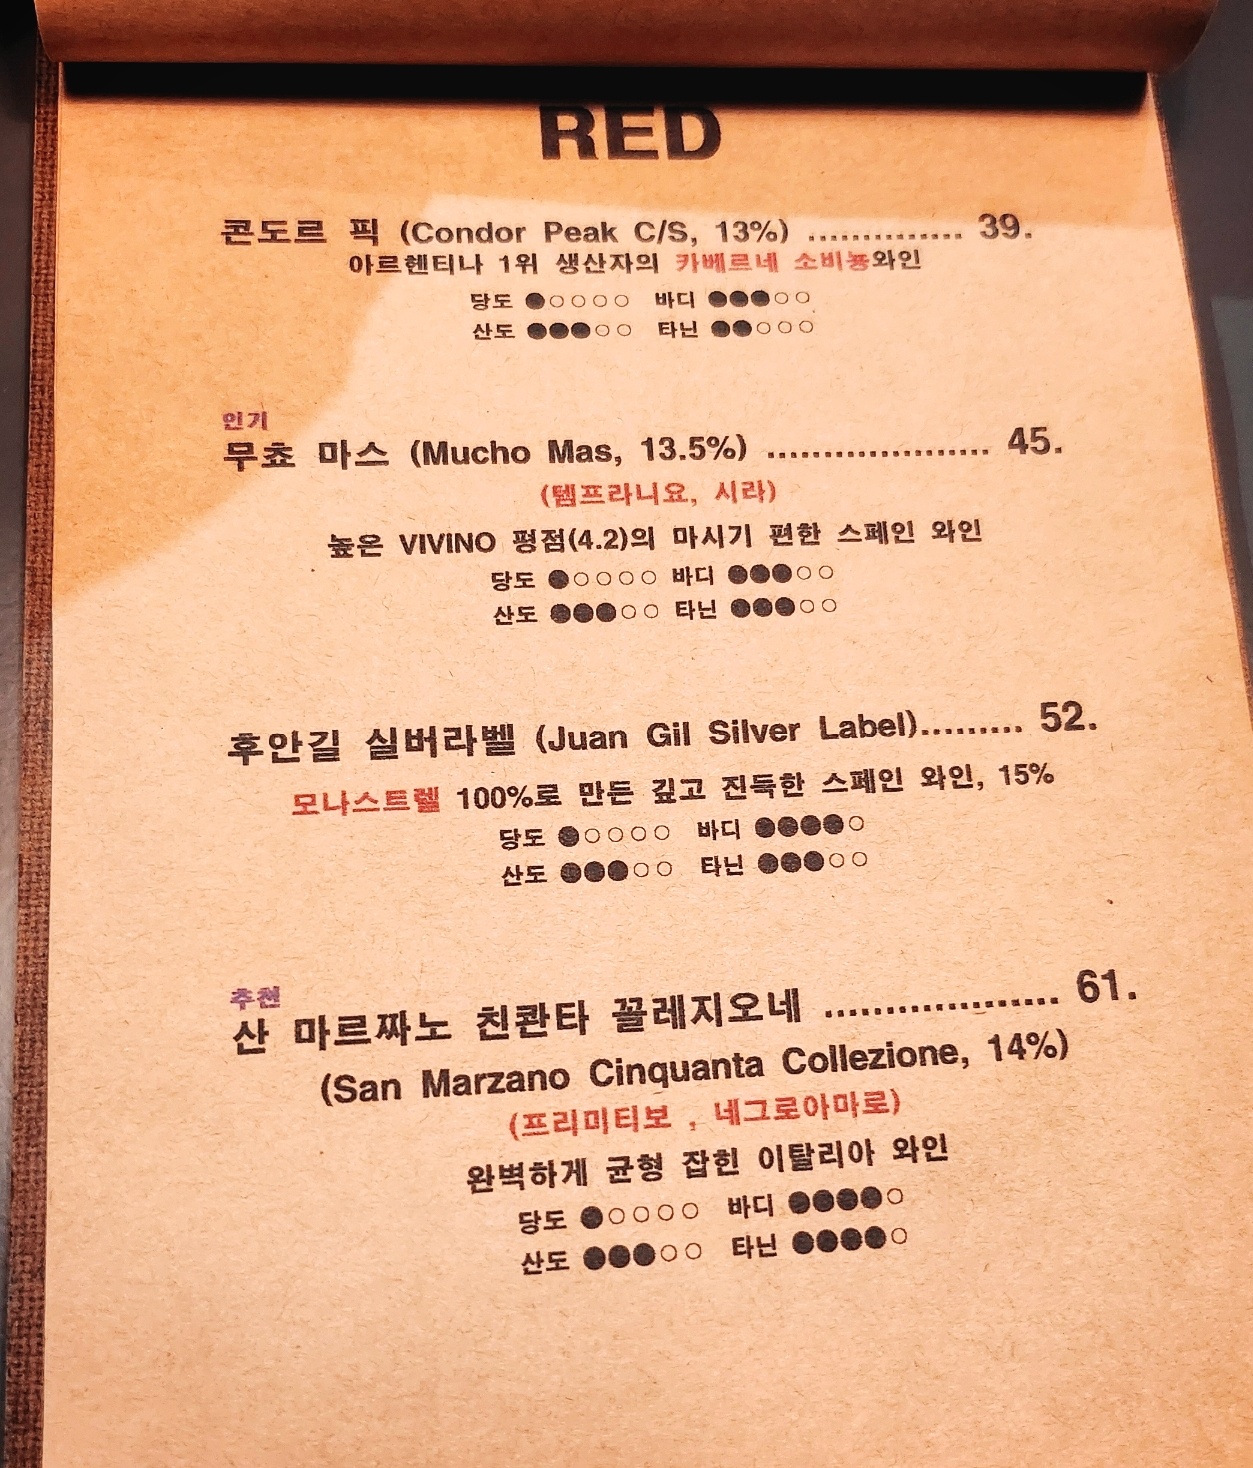 RED
콘도르 픽 (Condor Peak C/S, 13%) .............. 39.
아르헨티나 1위 생산자의 카베르네 소비뇽와인
당도 ●○○○○ 바디 ●●●○○
산도 ●●●○○ 타닌 ●●○○○
인기
무쵸 마스 (Mucho Mas, 13.5%) .................... 45.
(템프라니요, 시라)
높은 VIVINO 평점(4.2)의 마시기 편한 스페인 와인
당도 ●○○○○ 바디 ●●●○○
산도 ●●●○○ 타닌 ●●●○○
후안길 실버라벨 (Juan Gil Silver Label)......... 52.
모나스트렐 100%로 만든 깊고 진득한 스페인 와인, 15%
당도 ●○○○○ 바디 ●●●●○
산도 ●●●○○ 타닌 ●●●○○
추천
산 마르짜노 친콴타 꼴레지오네 ................... 61.
(San Marzano Cinquanta Collezione, 14%)
(프리미티보 , 네그로아마로)
완벽하게 균형 잡힌 이탈리아 와인
당도 ●○○○○ 바디 ●●●●○
산도 ●●●○○ 타닌 ●●●●○